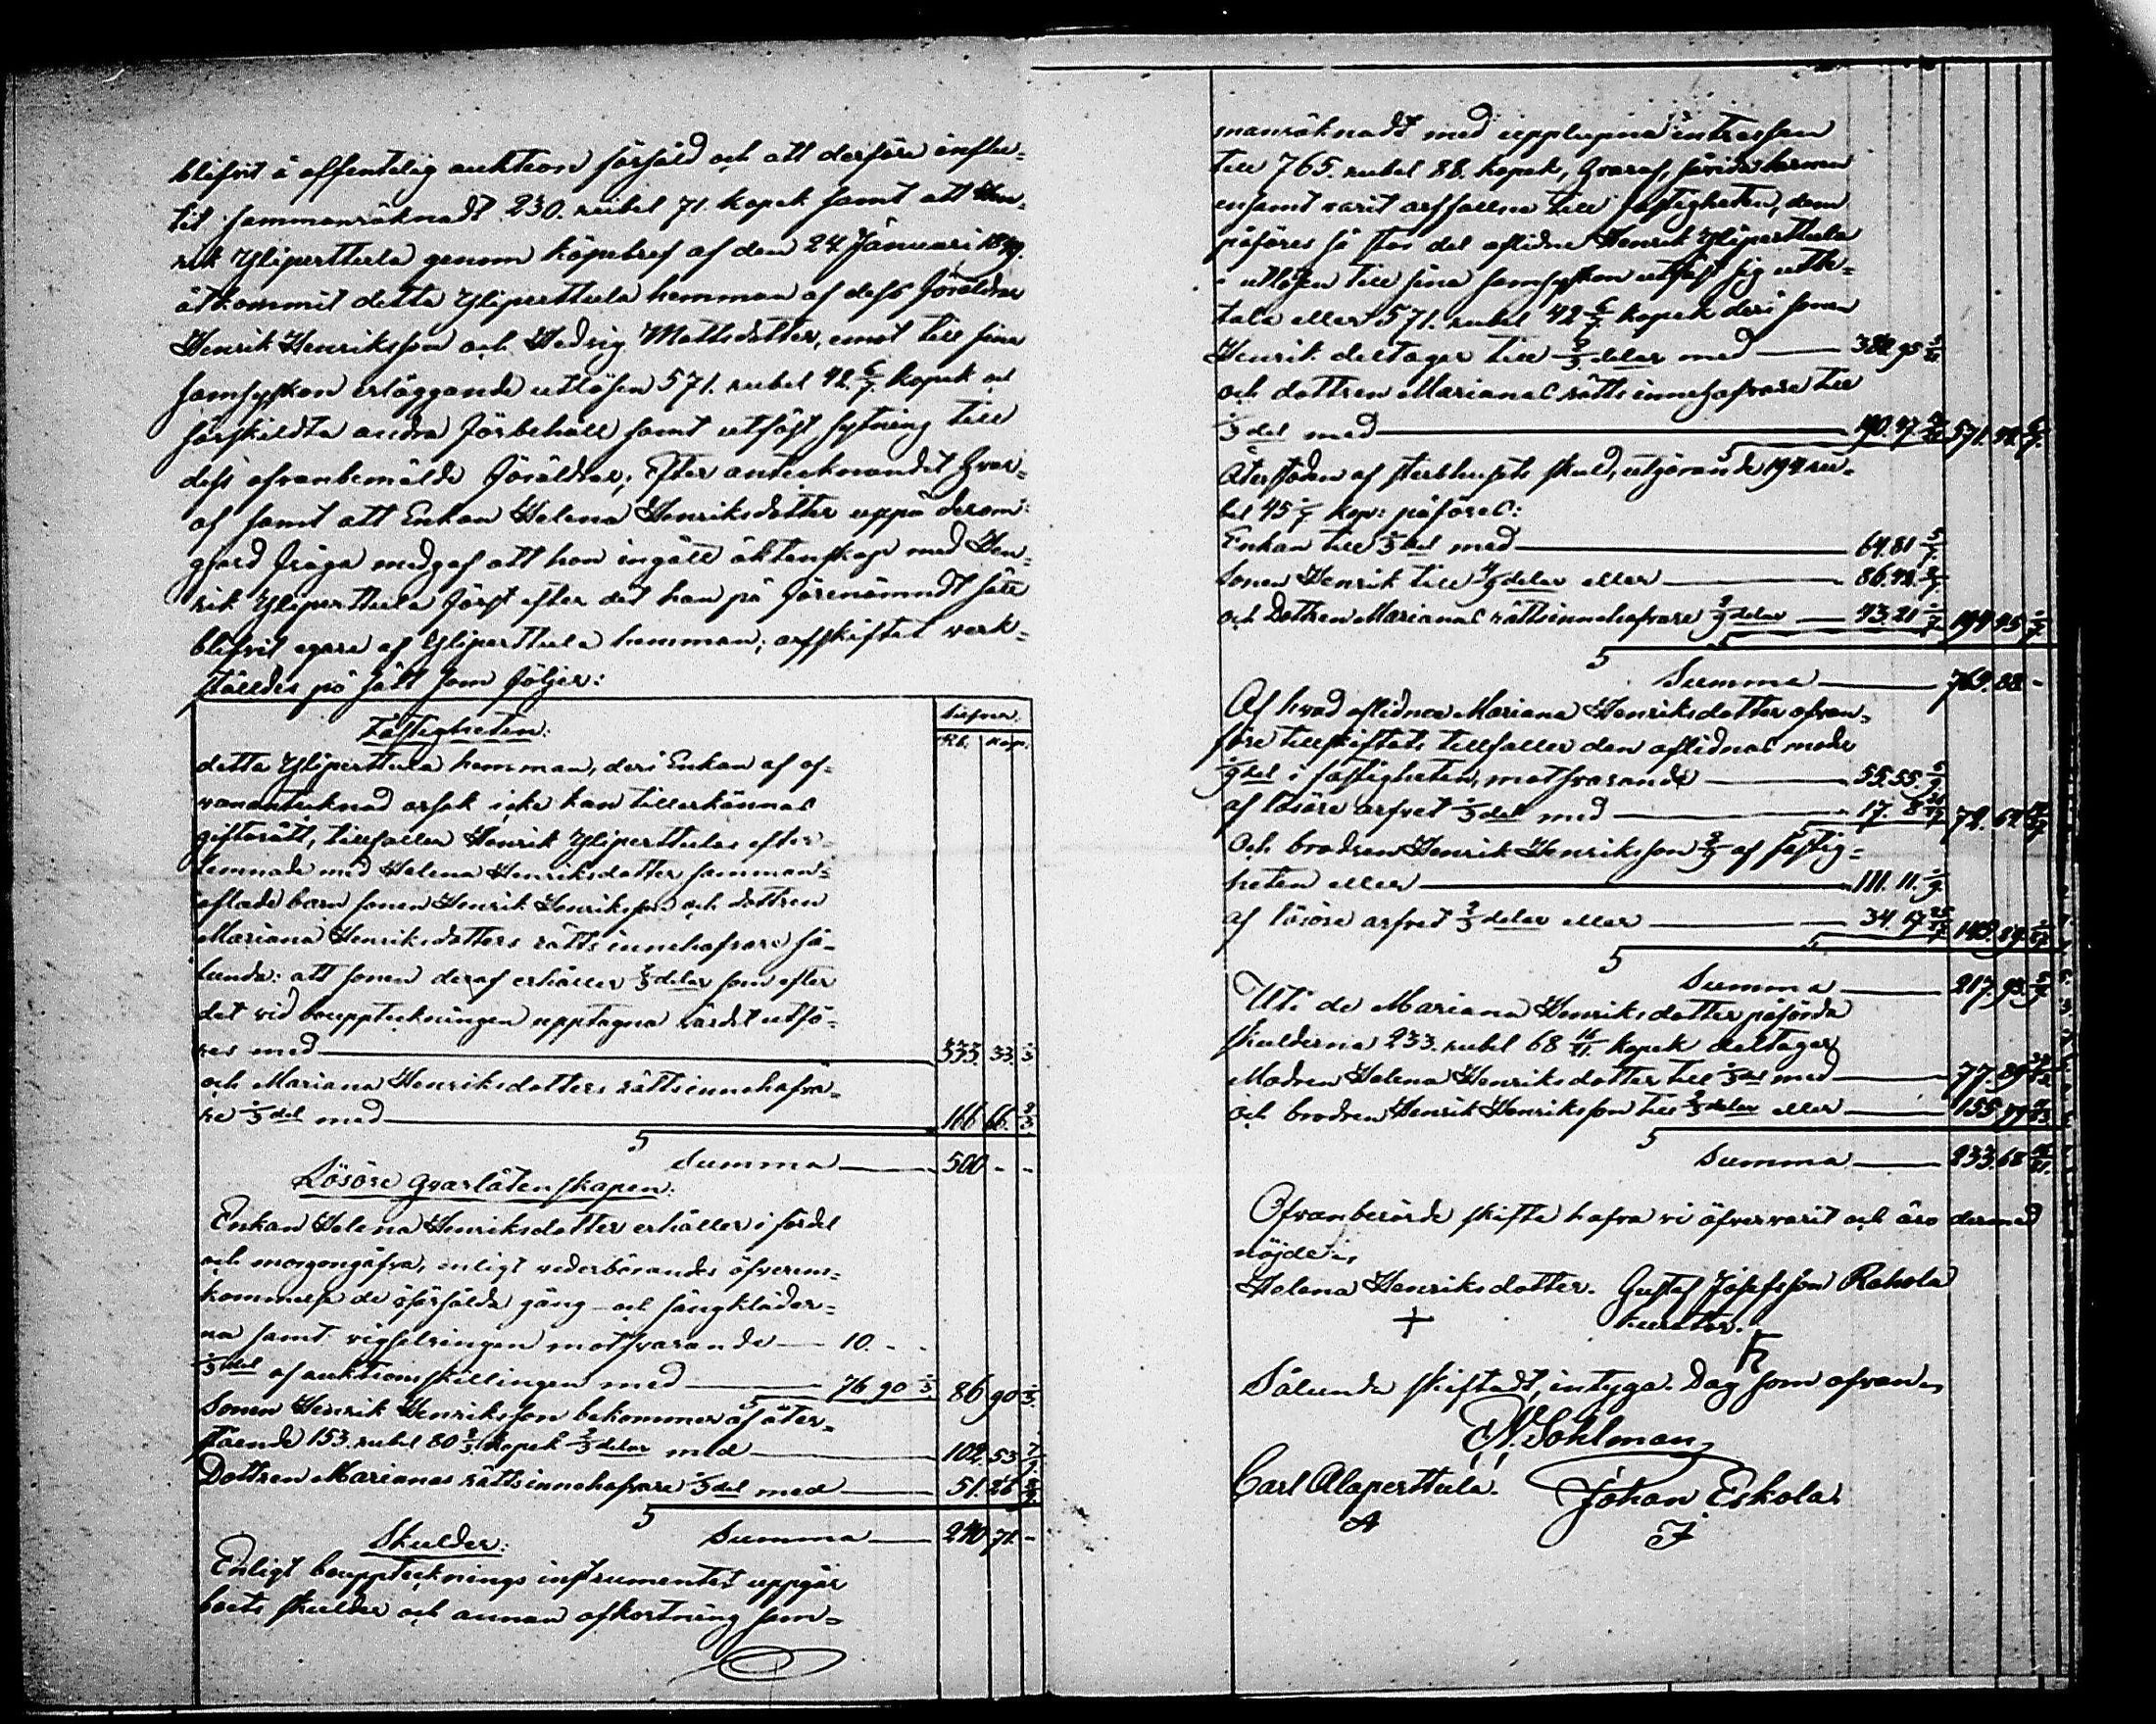 blifvit å offentelig auktion försåld och att derföre influ-
tit sammanräknadt 230. rubel 71. kopek samt att Hen-
rik Yliperttula genom köpebref af den 24 Januari
åtkommit detta Yliperttula hemman af dess föräldrar
Henrik Henriksson och Hedvig Mattsdotter, emot till sina
samsyskon erläggande utlösen 571. rubel 42 6/7 kopek och
särskildta andra förbehåll samt utfäst sytning till
dess ofvanbemälde föräldrar; Efter antecknandet hvar-
af samt att Enkan Helena Henriksdotter uppå derom
gjord fråga medgaf att hon ingått äktenskap med Hen-
rik Yliperttula först efter det han på förenämndt sätt
blifvit egare af Yliperttula hemman; arfskiftet verk-
ställdes på sätt som följer:
Silfver.
Fastigheten:
Rb. Kop.
detta Yliperttula hemman, deri Enkan af of-
vanantecknad orsak icke kan tillerkännas
giftorätt, tillfaller Henrik Yliperttulas efter-
lemnade med Helena Henriksdotter samman-
aflade barn sonen Henrik Henriksson och dottren
Mariana Henriksdotters rätts innehafvare så-
lunda: att sonen deraf erhåller 2/3 delar som efter
det vid bouppteckningen upptagna värdet utfö-
res med 333. 33. 1/3
och Mariana Henriksdotters rättsinnehafva-
re 1/3 del med 166 66. 2/3
Summa 500 - -
Lösöre qvarlåtenskapen:
Enkan Helena Henriksdotter erhåller i fördel
och morgongåfva, enligt vederbörandes öfverens-
kommelse de oförsålda gång- och sängkläder-
na samt vigselringen motsvarande 10. - -
1/3 del af auktionsskillingen med 76 90 1/3. 86 90 1/3.
Sonen Henrik Henriksson bekommer af åter-
stående 153. rubel 80 2/3. kopek 2/3 delar med 102. 53 7/9
Dottren Marianas rättsinnehafvare 1/3 del med 51. 26 8/9.
Summa 240 71. -
Skulder:
Enligt bouppteckningsinstrumentet uppgår
boets skulder och annan afkortning sam-
manräknadt med upplupna intressen
till 765. rubel 88. kopek, hvaraf,
ensamt varit arffallna till fastigheten, dem
påföres så stor del aflidne Henrik Yliperttula
i utlösen till sina samsyskon utfäst sig utbe-
tala eller 571. rubel 42 6/7 kopek deri sonen
Henrik deltager till 2/3 delar med 380 95 5/21
och dottren Marianas rättsinnehafvare till
1/3 del med 190. 47. 571. 42. 6/7.
Återstoden af sterbhusets skuld, utgörande 194 ru-
bel 45 1/7 kop: påföres:
Enkan till 1/3 del med 64. 81 5/7.
Sonen Henrik till 4/9 delar eller 86. 42 2/7.
och Dottren Marianas rättsinnehafvare 2/9 delar 43. 21 1/7 194 45 1/7
Summa 765. 88 -
Af hvad aflidna Mariana Henriksdotter ofvan-
före tillskiftats tillfaller den aflidnas moder
1/9 del i fastigheten, motsvarande 55. 55. 5/9
af lösöre arfvet 1/3 del med 17. 8 26/27 72. 64
Och brodren Henrik Henriksson 2/9 af fastig-
heten eller 111. 11. 1/9.
af lösöre arfvet 2/3 delar eller 34. 17 25/27 145. 29.
Summa 217. 93. 5/9.
Uti de Mariana Henriksdotter påförda
skulderna 233. rubel 68 16/21. kopek deltager
Modren Helena Henriksdotter till 1/3 del med 77. 89
och brodren Henrik Henriksson till 2/3 delar eller 155 79
Summa 233. 68 16/21.
Ofvanberörde skifte hafva vi öfvervarit och äro dermed
nöjde.
Helena Henriksdotter. Gustaf Josefsson Rahola
+ kurator.
Sålunda skiftadt, intyga. Dag som ofvan.
N. Sohlman
Carl Alaperttula. Johan Eskola.
A J